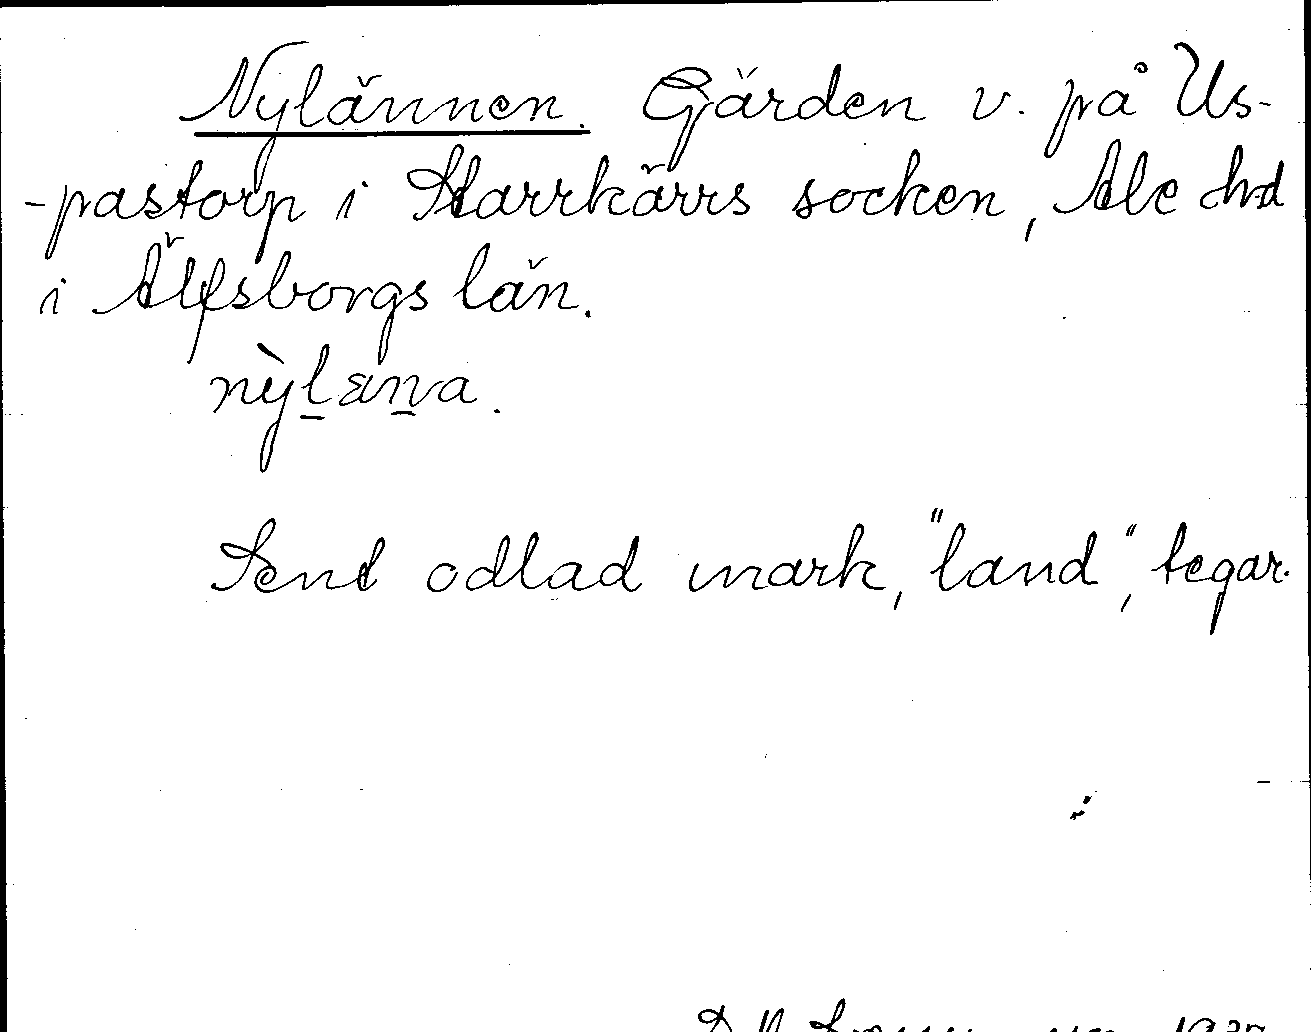 Nylännen. Gärden v. på Us-
-pastorp i Starrkärrs socken, Ale hd
i Älfsborgs län.
nỳlæna.
Sent odlad mark, "land", tegar.